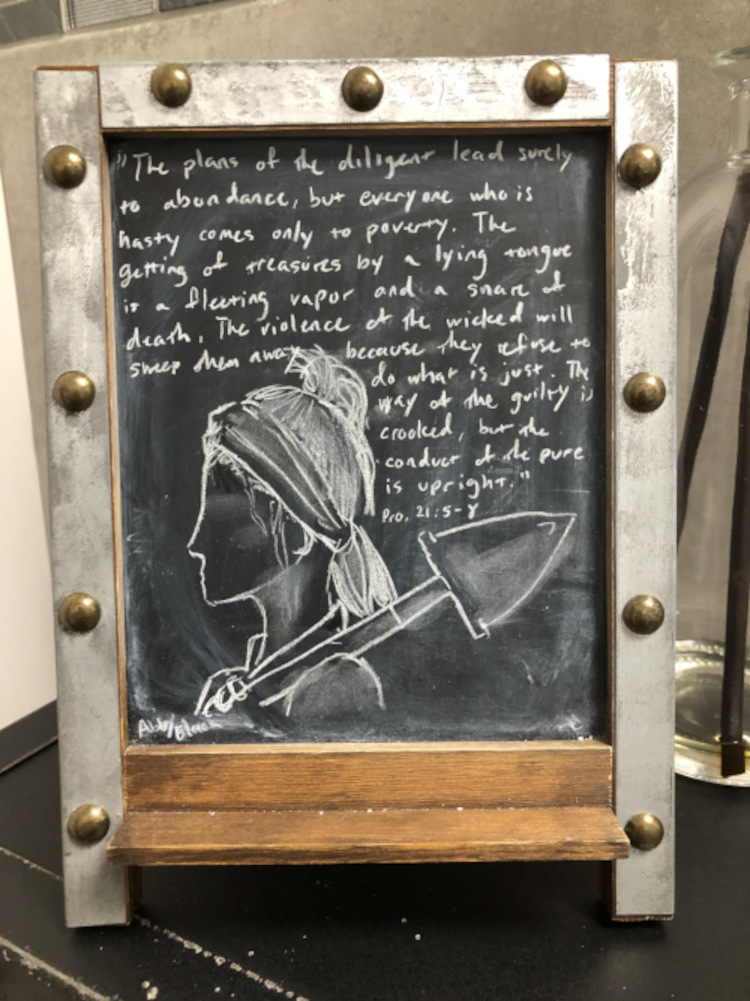 "The plans of the diligent lead surely
to abundance, but everyone who is
hasty comes only to poverty. The
getting of treasures by a lying tongue
is a fleeting vapor and a snare of
death. The violence of the wicked will
sweep them away because they refuse to
do what is just. The
way of the guilty is
crooked, but the
conduct of the pure
is upright."
Pro. 21:5-8